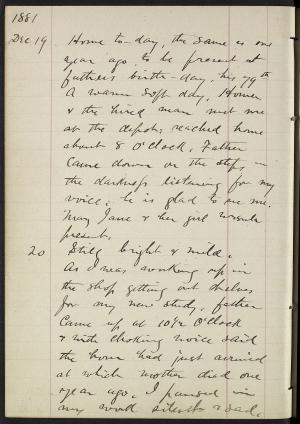 1881
Dec 19 Home to-day, the same as one
year ago, to be present at
father's birth-day, his 79th
A warm soft day. Homer
& the hired man met me
at the depot; reached home
about 8 O'clock. Father
came down on the step, in
the darkness listening for my
voice; he is glad to see me.
Mary Jane & her girl
present.
20 Still bright & mild.
As I was working up in
the shop getting out shelves
for my new study, father
came up at 10½ O'clock
& with choking voice said
the hour had just arrived
at which mother died one
year ago. I paused in
my work silent & sad.